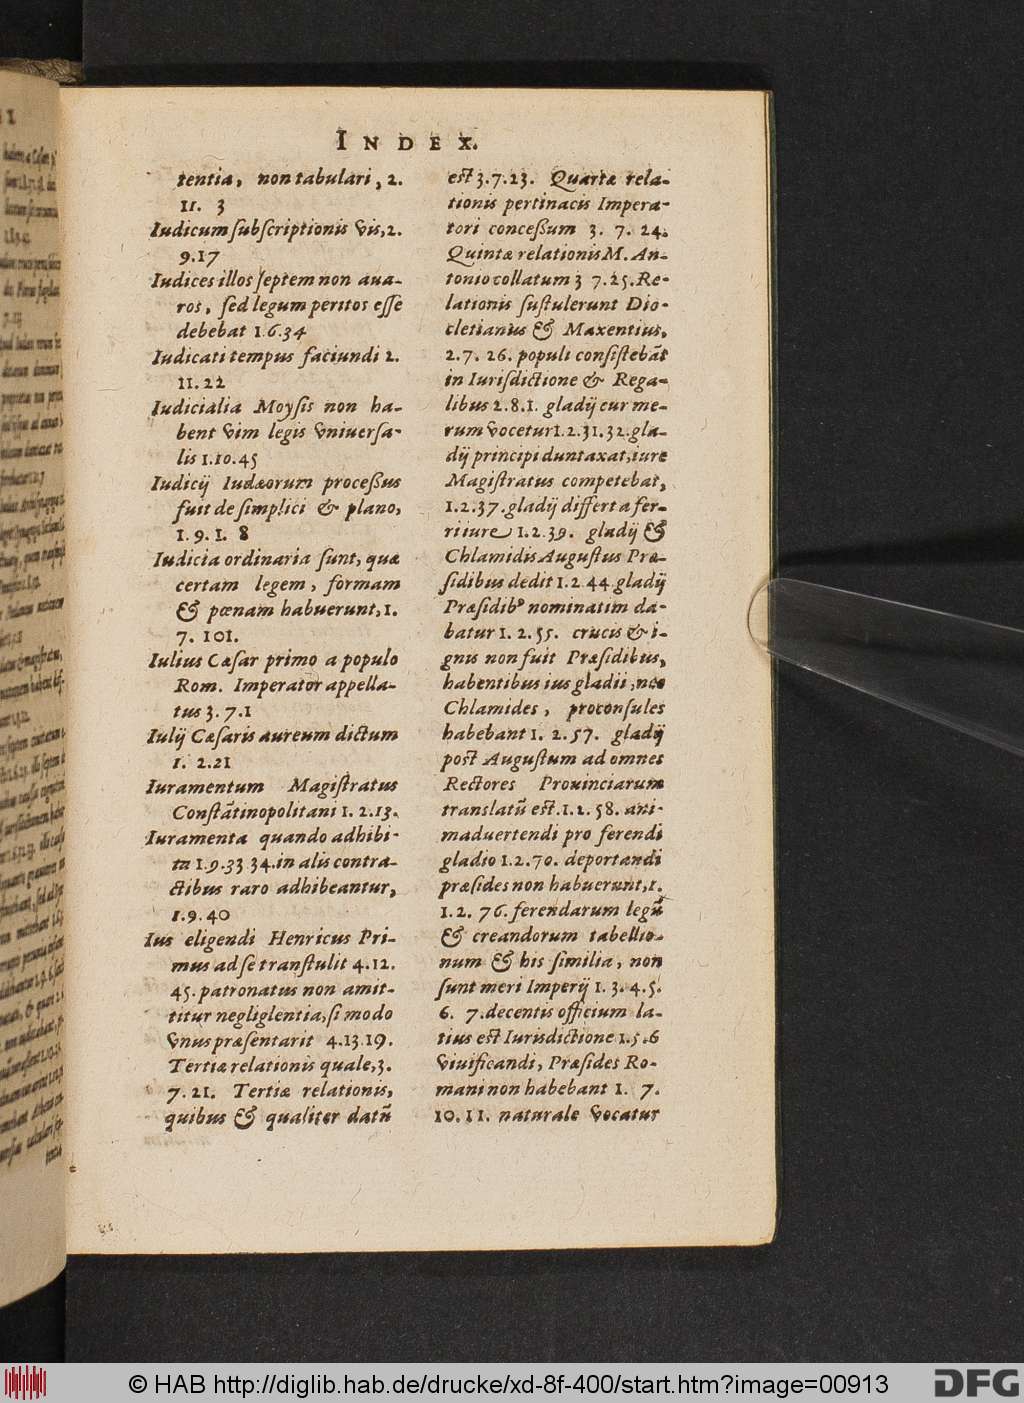 INDEX.
tentia, non tabulari, 2.
11. 3
Iudicum ſubſcriptionis vis, 2.
9.17
Iudices illos ſeptem non aua-
ros, ſed legum peritos eſſe
debebat 1.6.34
Iudicati tempus faciundi 2.
11.22
Iudicialia Moyſis non ha-
bent vim legis vniuerſa-
lis 1.10.45
Iudicij Iudæorum proceßus
fuit de ſimplici & plano,
1. 9. 1. 8
Iudicia ordinaria ſunt, quæ
certam legem, formam
& pœnam habuerunt, 1.
7. 101.
Iulius Cæſar primo a populo
Rom. Imperator appella-
tus 3. 7.1
Iulij Cæſaris aureum dictum
1. 2.21
Iuramentum Magiſtratus
Conſtãtinopolitani 1. 2.13.
Iuramenta quando adhibi-
ta 1.9.33 34. in alis contra-
ctibus raro adhibeantur,
1.9.40
Ius eligendi Henricus Pri-
mus ad ſe tranſtulit 4.12.
45. patronatus non amit-
titur negliglentia, ſi modo
vnus præſentarit 4.13.19.
Tertiæ relationis quale, 3.
7.21. Tertiæ relationis,
quibus & qualiter datũ
eſt 3.7.23. Quartæ rela-
tionis pertinacis Impera-
tori conceßum 3. 7. 24.
Quintæ relationis M. An-
tonio collatum 3 7.25. Re-
lationis ſuſtulerunt Dio-
cletianus & Maxentius,
2.7. 26. populi conſiſtebãt
in Iuriſdictione & Rega-
libus 2.8.1. gladij cur me-
rum vocetur 1.2.31.32. gla-
dij principi duntaxat, iure
Magiſtratus competebat,
1.2.37. gladij differt a fer-
ri iure 1.2.39. gladij &
Chlamidis Auguſtus Præ-
ſidibus dedit 1.2 44. gladij
Præſidibꝰ nominatim da-
batur 1. 2. 55. crucis & i-
gnis non fuit Præſidibus,
habentibus ius gladii, nec
Chlamides, proconſules
habebant 1. 2.57. gladij
poſt Auguſtum ad omnes
Rectores Prouinciarum
translatũ eſt. 1.2. 58. ani-
maduertendi pro ferendi
gladio 1.2.70. deportandi
præſides non habuerunt, 1.
1.2. 76. ferendarum legũ
& creandorum tabellio-
num & his ſimilia, non
ſunt meri Imperij 1. 3. 4.5.
6. 7. decentis officium la-
tius eſt Iurisdictione 1.5.6
viuificandi, Præſides Ro-
mani non habebant 1. 7.
10. 11. naturale vocatur
© HAB http://diglib.hab.de/drucke/xd-8f-400/start.htm?image=00913
DFG